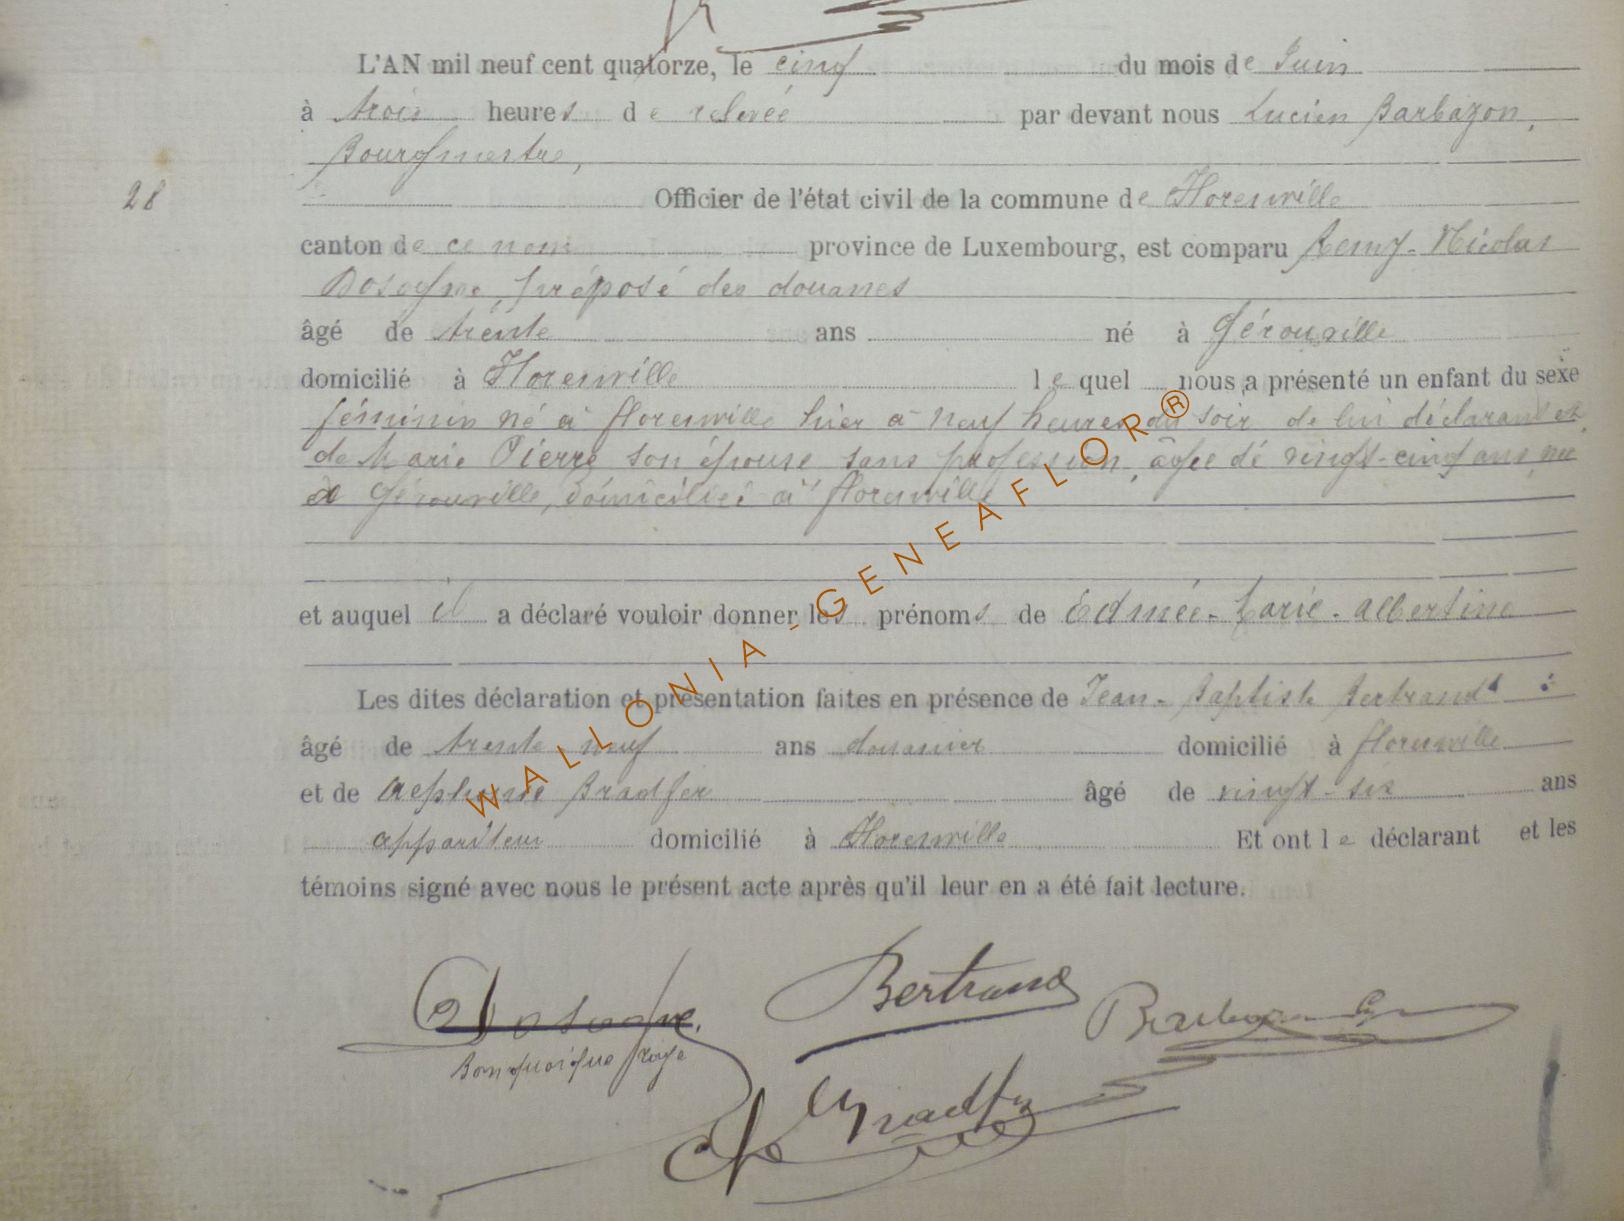 L'AN mil neuf cent quatorze, le cinq du mois de Juin
à trois heures de relevée par devant nous Lucien Barbazon,
Bourgmestre,
28
Officier de l'état civil de la commune de Florenville
canton de ce nom province de Luxembourg, est comparu Remy-Nicolas
Dosogne, préposé des douanes
âgé de trente ans né à Gérouville
domicilié à Florenville lequel nous a présenté un enfant du sexe
féminin né à Florenville hier à neuf heures du soir de lui déclarant et
de Marie Pierre son épouse sans profession, âgée de vingt-cinq ans née
à Gérouville, domiciliée à Florenville
et auquel il a déclaré vouloir donner les prénoms de Edmée-Marie-Albertine
Les dites déclaration et présentation faites en présence de Jean-Baptiste Bertrand
âgé de trente neuf ans douanier domicilié à Florenville
et de Bradfer âgé de vingt-six ans
appariteur domicilié à Florenville Et ont le déclarant et les
témoins signé avec nous le présent acte après qu'il leur en a été fait lecture.
Dosogne Bertrand Barbazon
Bon quoique rayé
Bradfer
WALLONIA-GENEAFLOR®